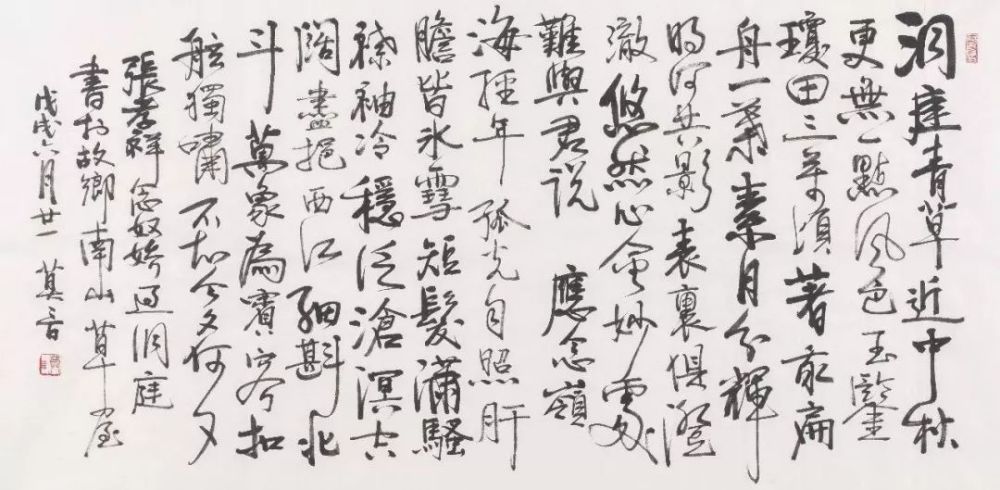 洞庭青草近中秋
更無一點風色玉鑒
瓊田三万頃著我扁
舟一葉素月分輝
明河共影表裏俱澄
澈悠然心會妙處
難與君説 應念嶺
海經年孤光自照肝
膽皆冰雪短髮瀟騷
襟袖冷穩泛滄溟空
闊盡挹西江細斟北
斗萬象為賓客扣
舷獨嘯不知今夕何夕
張孝祥念奴嬌過洞庭
書於故鄉南山草屋
戊戌六月廿一 莫言